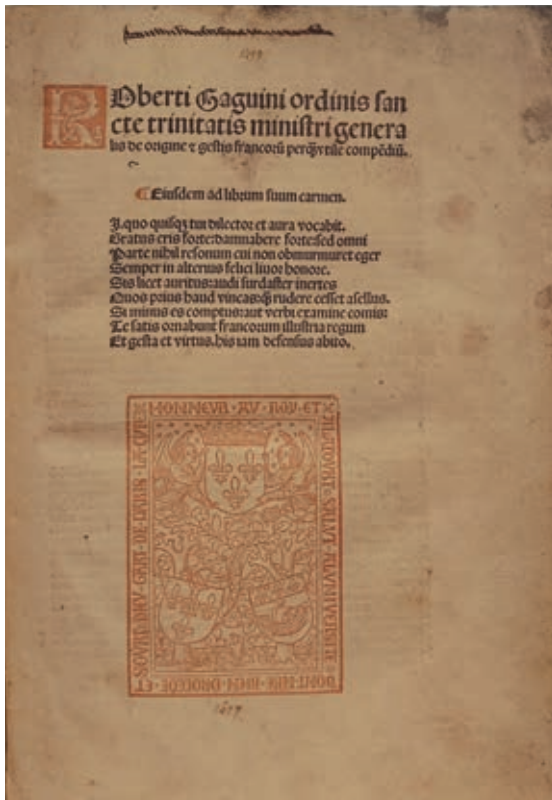 1499
Roberti Gaguini ordinis san
cte trinitatis ministri genera
lis de origine ⁊ gestis francorū perq̃vtile compēdiū.
Eiusdem ad librum suum carmen.
I, quo quisq₃ tui dilector et aura vocabit.
Gratus eris forte: damnabere forte: sed omni
Parte nihil resonum cui non obmurmuret eger
Semper in alterius felici liuor honore.
Sis licet auritus: audi surdaster inertes
Quos prius haud vincas: q̃ rudere cesset asellus.
Si minus es comptus: aut verbi examine comis:
Te satis ornabunt francorum illustria regum
Et gesta et virtus. his iam defensus abito.
HONNEUR · AU · ROY · ET
A · LA · COURT · SALUT · A · LUNIVERSITE
DONT · NRE · BIEN · PROCEDE · ET
SOURT · DIEU · GART · DE · PARIS · LA · CITE